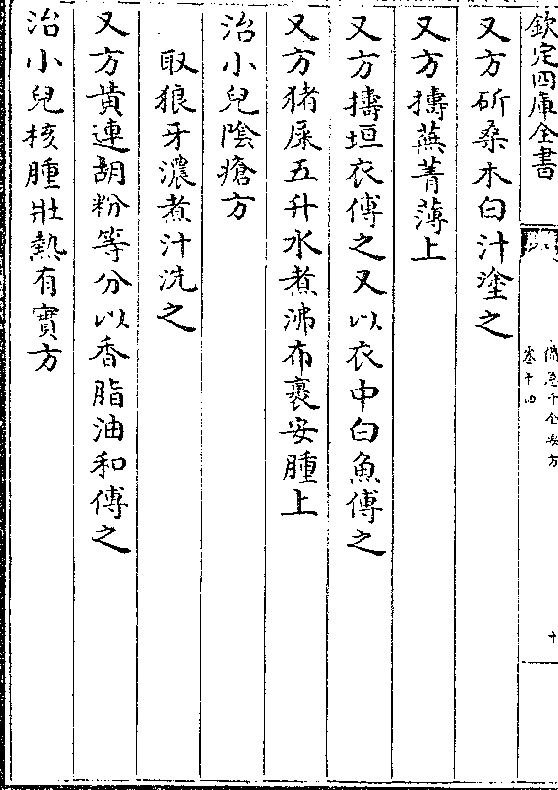 欽定四庫全書
備急千金要方
卷十四
十
又方斫桑木白汁塗之
又方擣蕪菁薄上
又方擣垣衣傅之又以衣中白魚傅之
又方猪屎五升水煮沸布裹安腫上
治小兒陰瘡方
取狼牙濃煮汁洗之
又方黄連胡粉等分以香脂油和傅之
治小兒核腫壯熱有實方